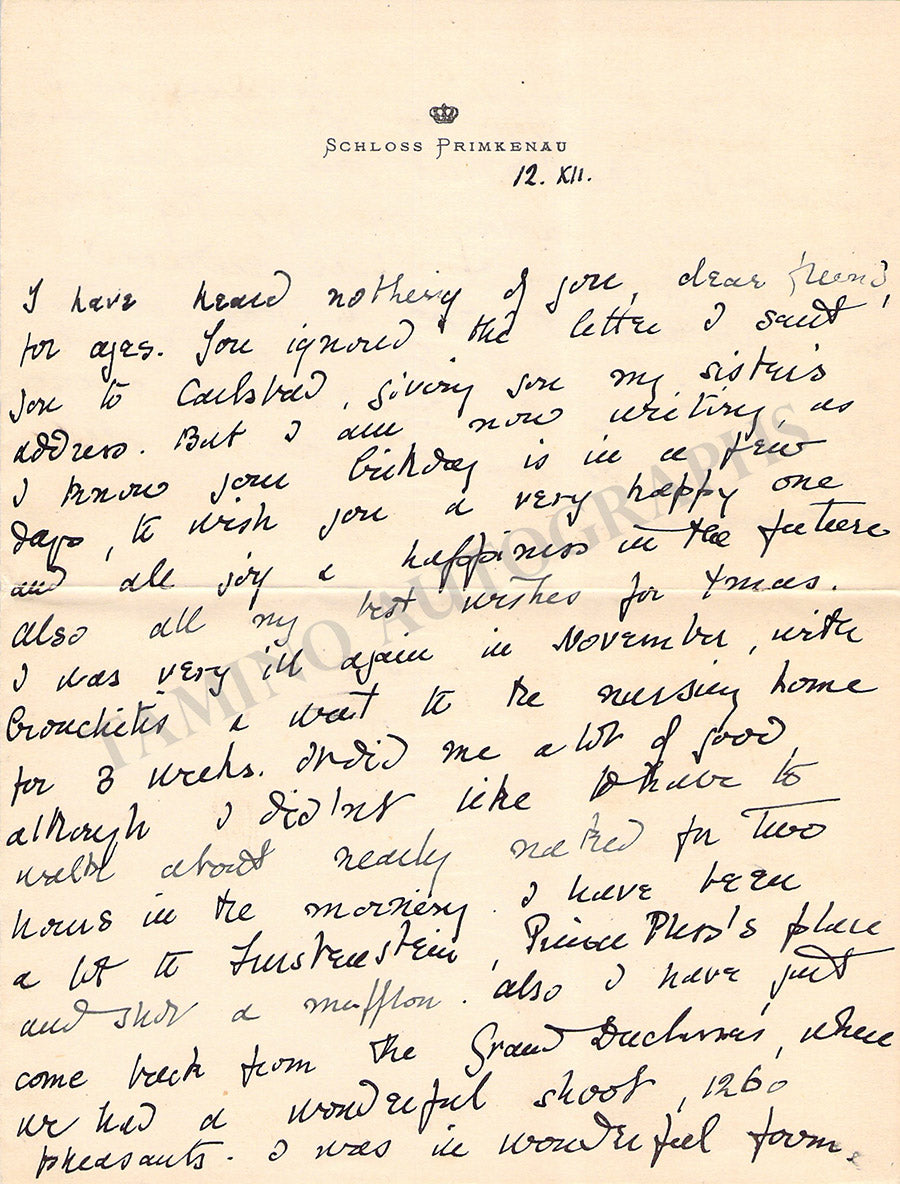 SCHLOSS PRIMKENAU
12. XII.
I have heard nothing of you, dear friend,
for ages. You ignored the letter I sent
you to Carlsbad, giving you my sister's
address. But I am now writing as
I know your birthday is in a few
days, to wish you a very happy one
and all joy & happiness in the future
also all my best wishes for Xmas.
I was very ill again in November, with
bronchitis & went to the nursing home
for 3 weeks. It did me a lot of good,
although I did'nt like to have to
walk about nearly naked for two
hours in the morning. I have been
a lot to Furstenstein, Prince Pless's place
and shot a mufflon. also I have just
come back from the Grand Duchess's, where
we had a wonderful shoot, 1260
pheasants. I was in wonderful form.
TAMINO AUTOGRAPHS